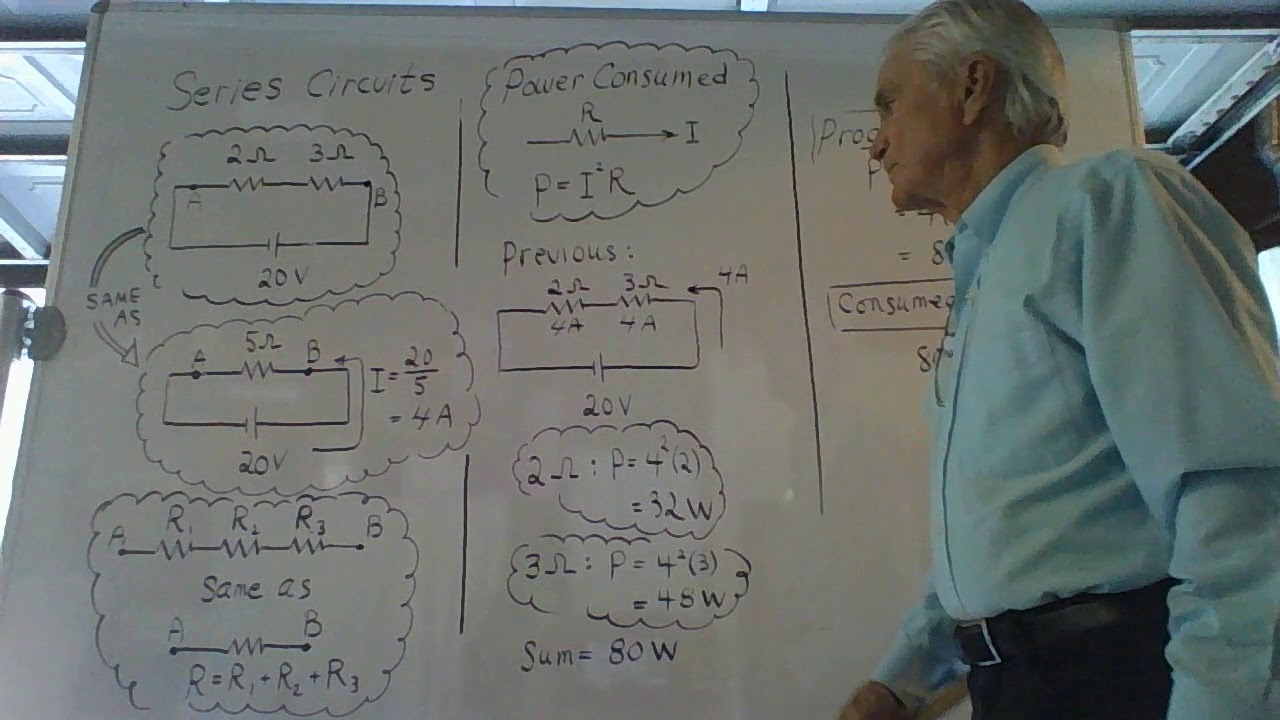 Series Circuits
2Ω 3Ω
A B
20V
SAME
AS
5Ω
A B
I = 20/5
= 4A
20V
R₁ R₂ R₃
A B
Same as
A B
R = R₁ + R₂ + R₃
Power Consumed
R
I
P = I²R
Previous:
2Ω 3Ω 4A
4A 4A
20V
2Ω : P = 4²(2)
= 32W
3Ω : P = 4²(3)
= 48W
Sum = 80W
P
= 8